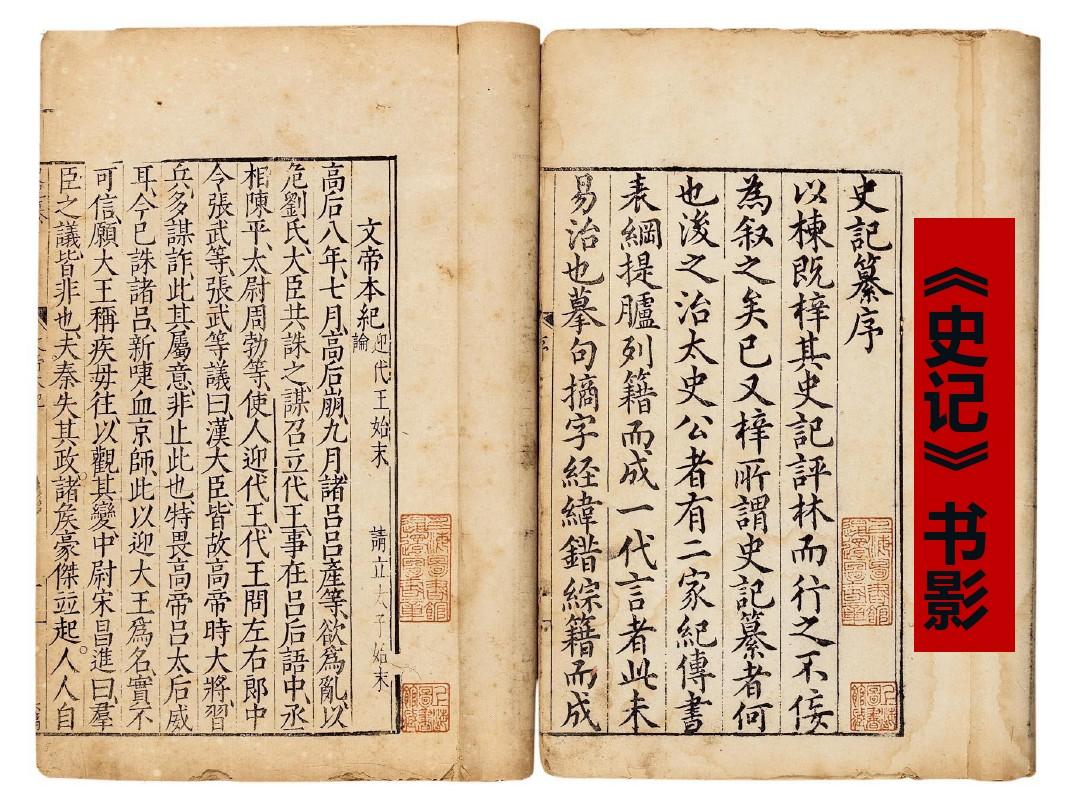 《史记》书影
史記纂序
以棟既梓其史記評林而行之不佞
為叙之矣已又梓所謂史記纂者何
也浚之治太史公者有二家紀傳書
表綱提臚列籍而成一代言者此未
易治也摹句摘字経緯錯綜籍而成
序
文帝本紀 迎代王始末 請立太子始末
論
高后八年七月高后崩九月諸呂呂產等欲為亂以
危劉氏大臣共誅之謀召立代王事在呂后語中丞
相陳平太尉周勃等使人迎代王代王問左右郎中
令張武等張武等議曰漢大臣皆故高帝時大將習
兵多謀詐此其屬意非止此也特畏高帝呂太后威
耳今已誅諸呂新啑血京師此以迎大王爲名實不
可信願大王稱疾毋往以觀其變中尉宋昌進曰羣
臣之議皆非也夫秦失其政諸矦豪傑並起。人人自